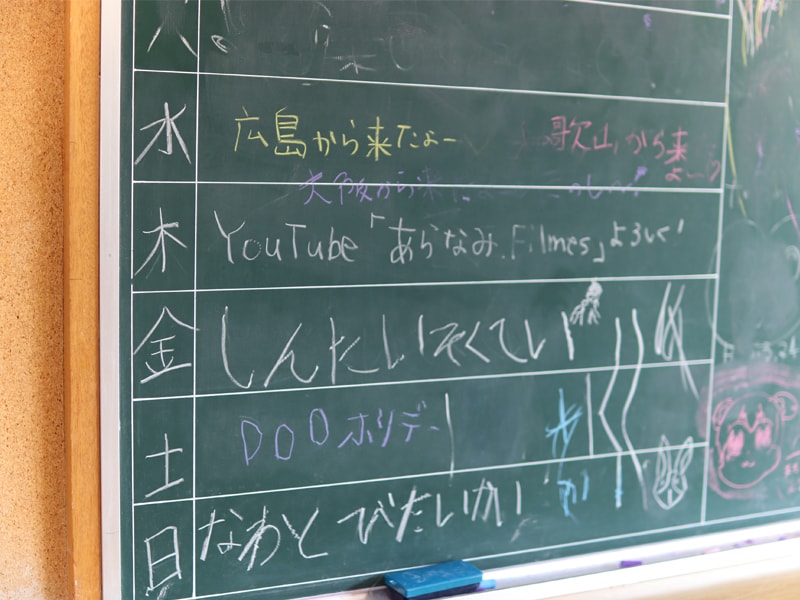 火
水 広島から来たよー 歌山から来
よ〜
大阪から来た
木 YouTube「あらなみ.Filmes」よろしく!
金 しんたいそくてい
土 DOOホリデー
日 なわとびたいかい